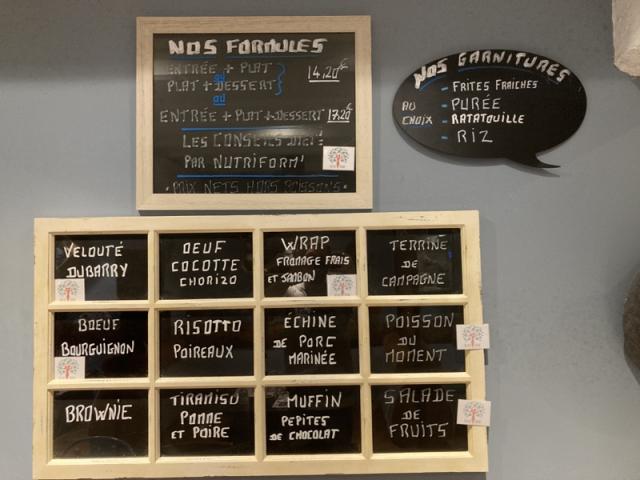 NOS FORMULES
ENTRÉE + PLAT
ou
PLAT + DESSERT
14,20€
ou
ENTRÉE + PLAT + DESSERT 17,20€
LES CONSEILS DIET'
PAR NUTRIFORM'
PRIX NETS HORS BOISSONS
NOS GARNITURES
AU CHOIX
- FRITES FRAICHES
- PURÉE
- RATATOUILLE
- RIZ
VELOUTÉ
DUBARRY
OEUF
COCOTTE
CHORIZO
WRAP
FROMAGE FRAIS
ET JAMBON
TERRINE
DE
CAMPAGNE
BOEUF
BOURGUIGNON
RISOTTO
POIREAUX
ÉCHINE
DE PORC
MARINÉE
POISSON
DU
MOMENT
BROWNIE
TIRAMISU
POMME
ET POIRE
MUFFIN
PEPITES
DE CHOCOLAT
SALADE
DE
FRUITS